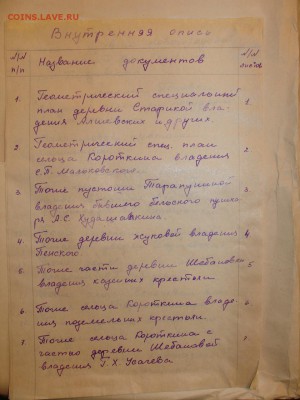 COINS.LAV.RU
Внутренняя опись
№№ п/п Название документов №№ листов
1. Геометрический специальный
план деревни Старикой вла-
дения и других. 1
2. Геометрический спец. план
сельца Короткина владения
С.П. 2
3. Тоже пустоши
владения бывшего
ря А.С. 3
4. Тоже деревни Жуковой владения
4
5. Тоже части деревни Шебановой
владения казенных крестьян 5
6. Тоже сельца Короткина владе-
ния крестьян 6
Тоже сельца Короткина с
частью деревни Шебановой
владения Г.Х. Усачева.